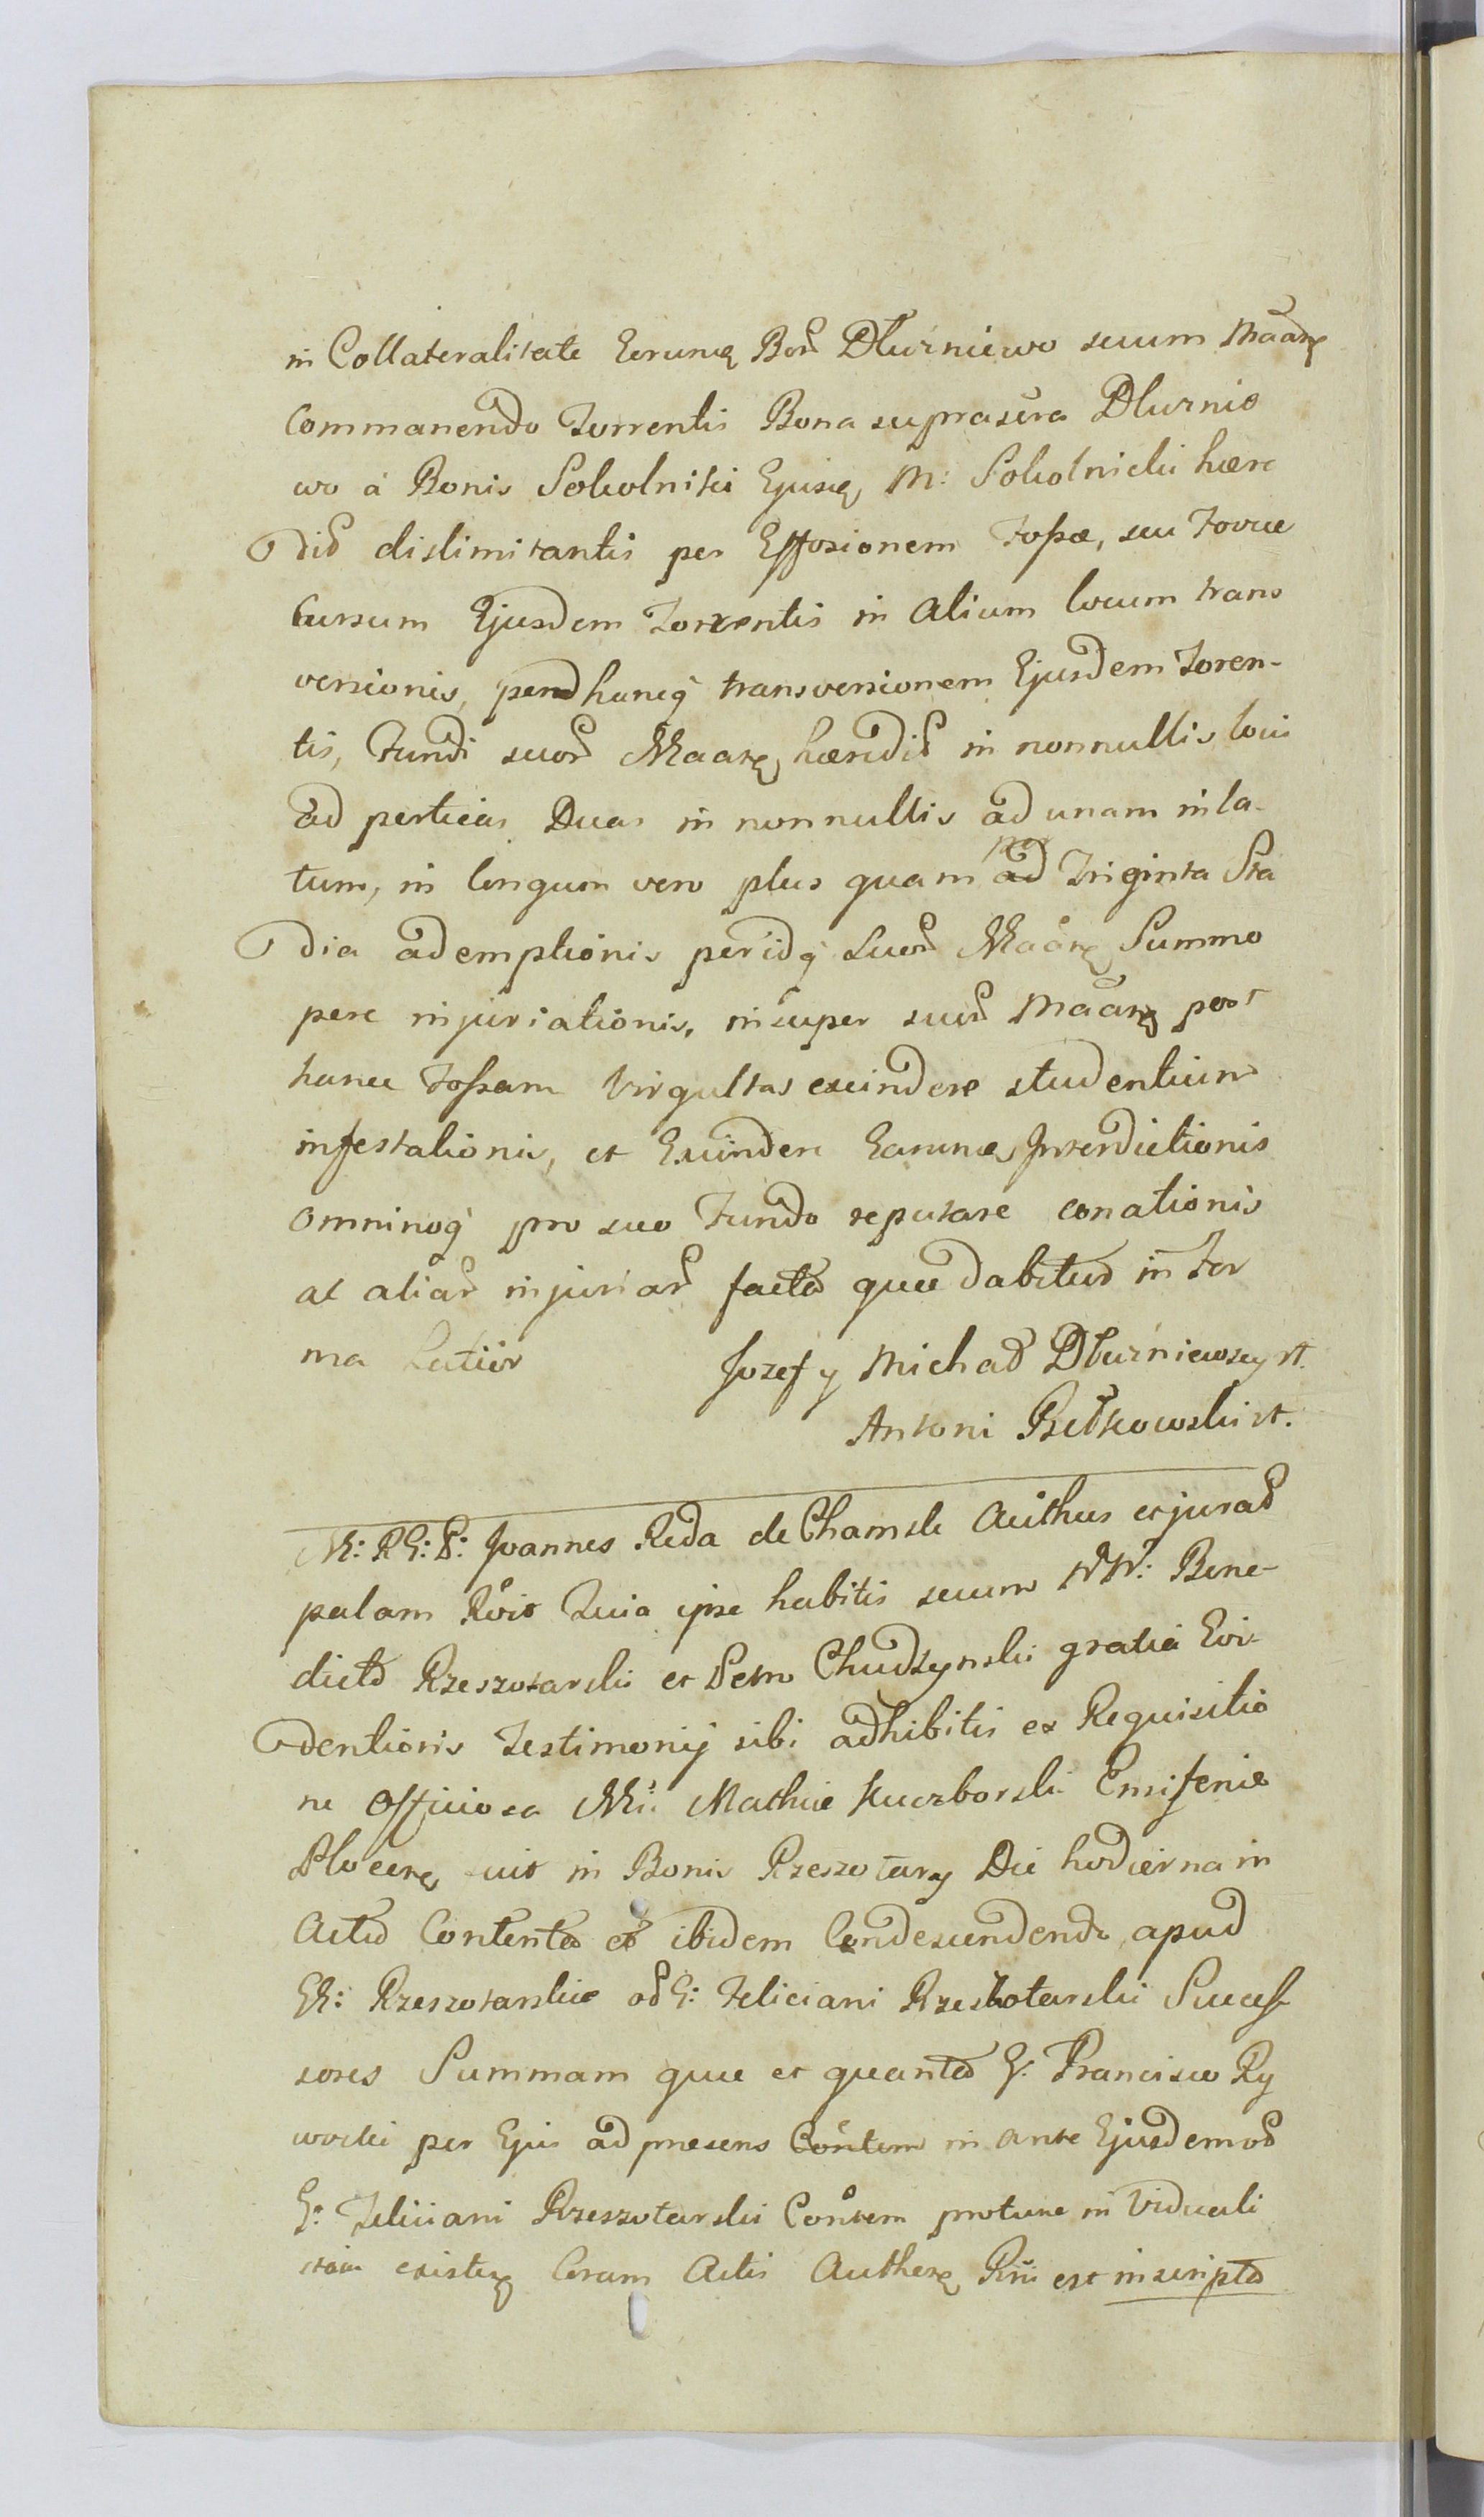 in Collateralitate Eorumq Bon Dłużniewo suum Maarq
Commanendo Torrentis Bona suprascra Dłużnie
wo á Bonis Sokolniki Ejusq M: Sokolnicki hære
did dislimitantis per Effosionem Fossæ, seu Foveæ
Cursum Ejusdem Torrentis in alium locum trans
versionis, perq hancq transversionem Ejusdem Toren-
tis, Fundi suor Maarq hæredid in nonnullis locis
ad perticas Duas in nonnullis ad unam in la-
tum, in longum vero plus quam ad per Triginta Sta
dia ademptionis per idq Suor Maarq Summo
pere injuriationis, insuper suar Maarq post
hanc Fossam Virgultas excindere studentium
infestationis, et Excindere Earumq Interdictionis
omninoq pro suo Fundo reputare conationis
at aliar injuriar facta quæ dabitur in For
ma Latior Jozef y Michał Dłużniewscy rt.
Antoni Rzeszkowski rt.
M: RG: P: Joannes Reda de Chamsk Authus et jurad
palam Rvit Quia ipse habitis secum NN: Bene-
dicto Rzeszotarski et Petro Chudzynski gratia Evi-
dentioris Testimonij sibi adhibitis ex Requisitio
ne Officiosa M: Mathiæ Kuczborski Ensiferi
Plocen fuit in Bonis Rzeszotary Die hodierna in
Actu Contento et ibidem Condescendendo apud
G: Rzeszotarskie od G: Feliciani Rzeszotarski Succes
sores Summam quæ et quanta G: Francisco Ry
wocki per Ejus ad præsens Contem in ante Ejusdem od
G: Feliciani Rzeszotarski Contem protunc in Viduali
statu existen Coram Actis Authen Rni est inscripta